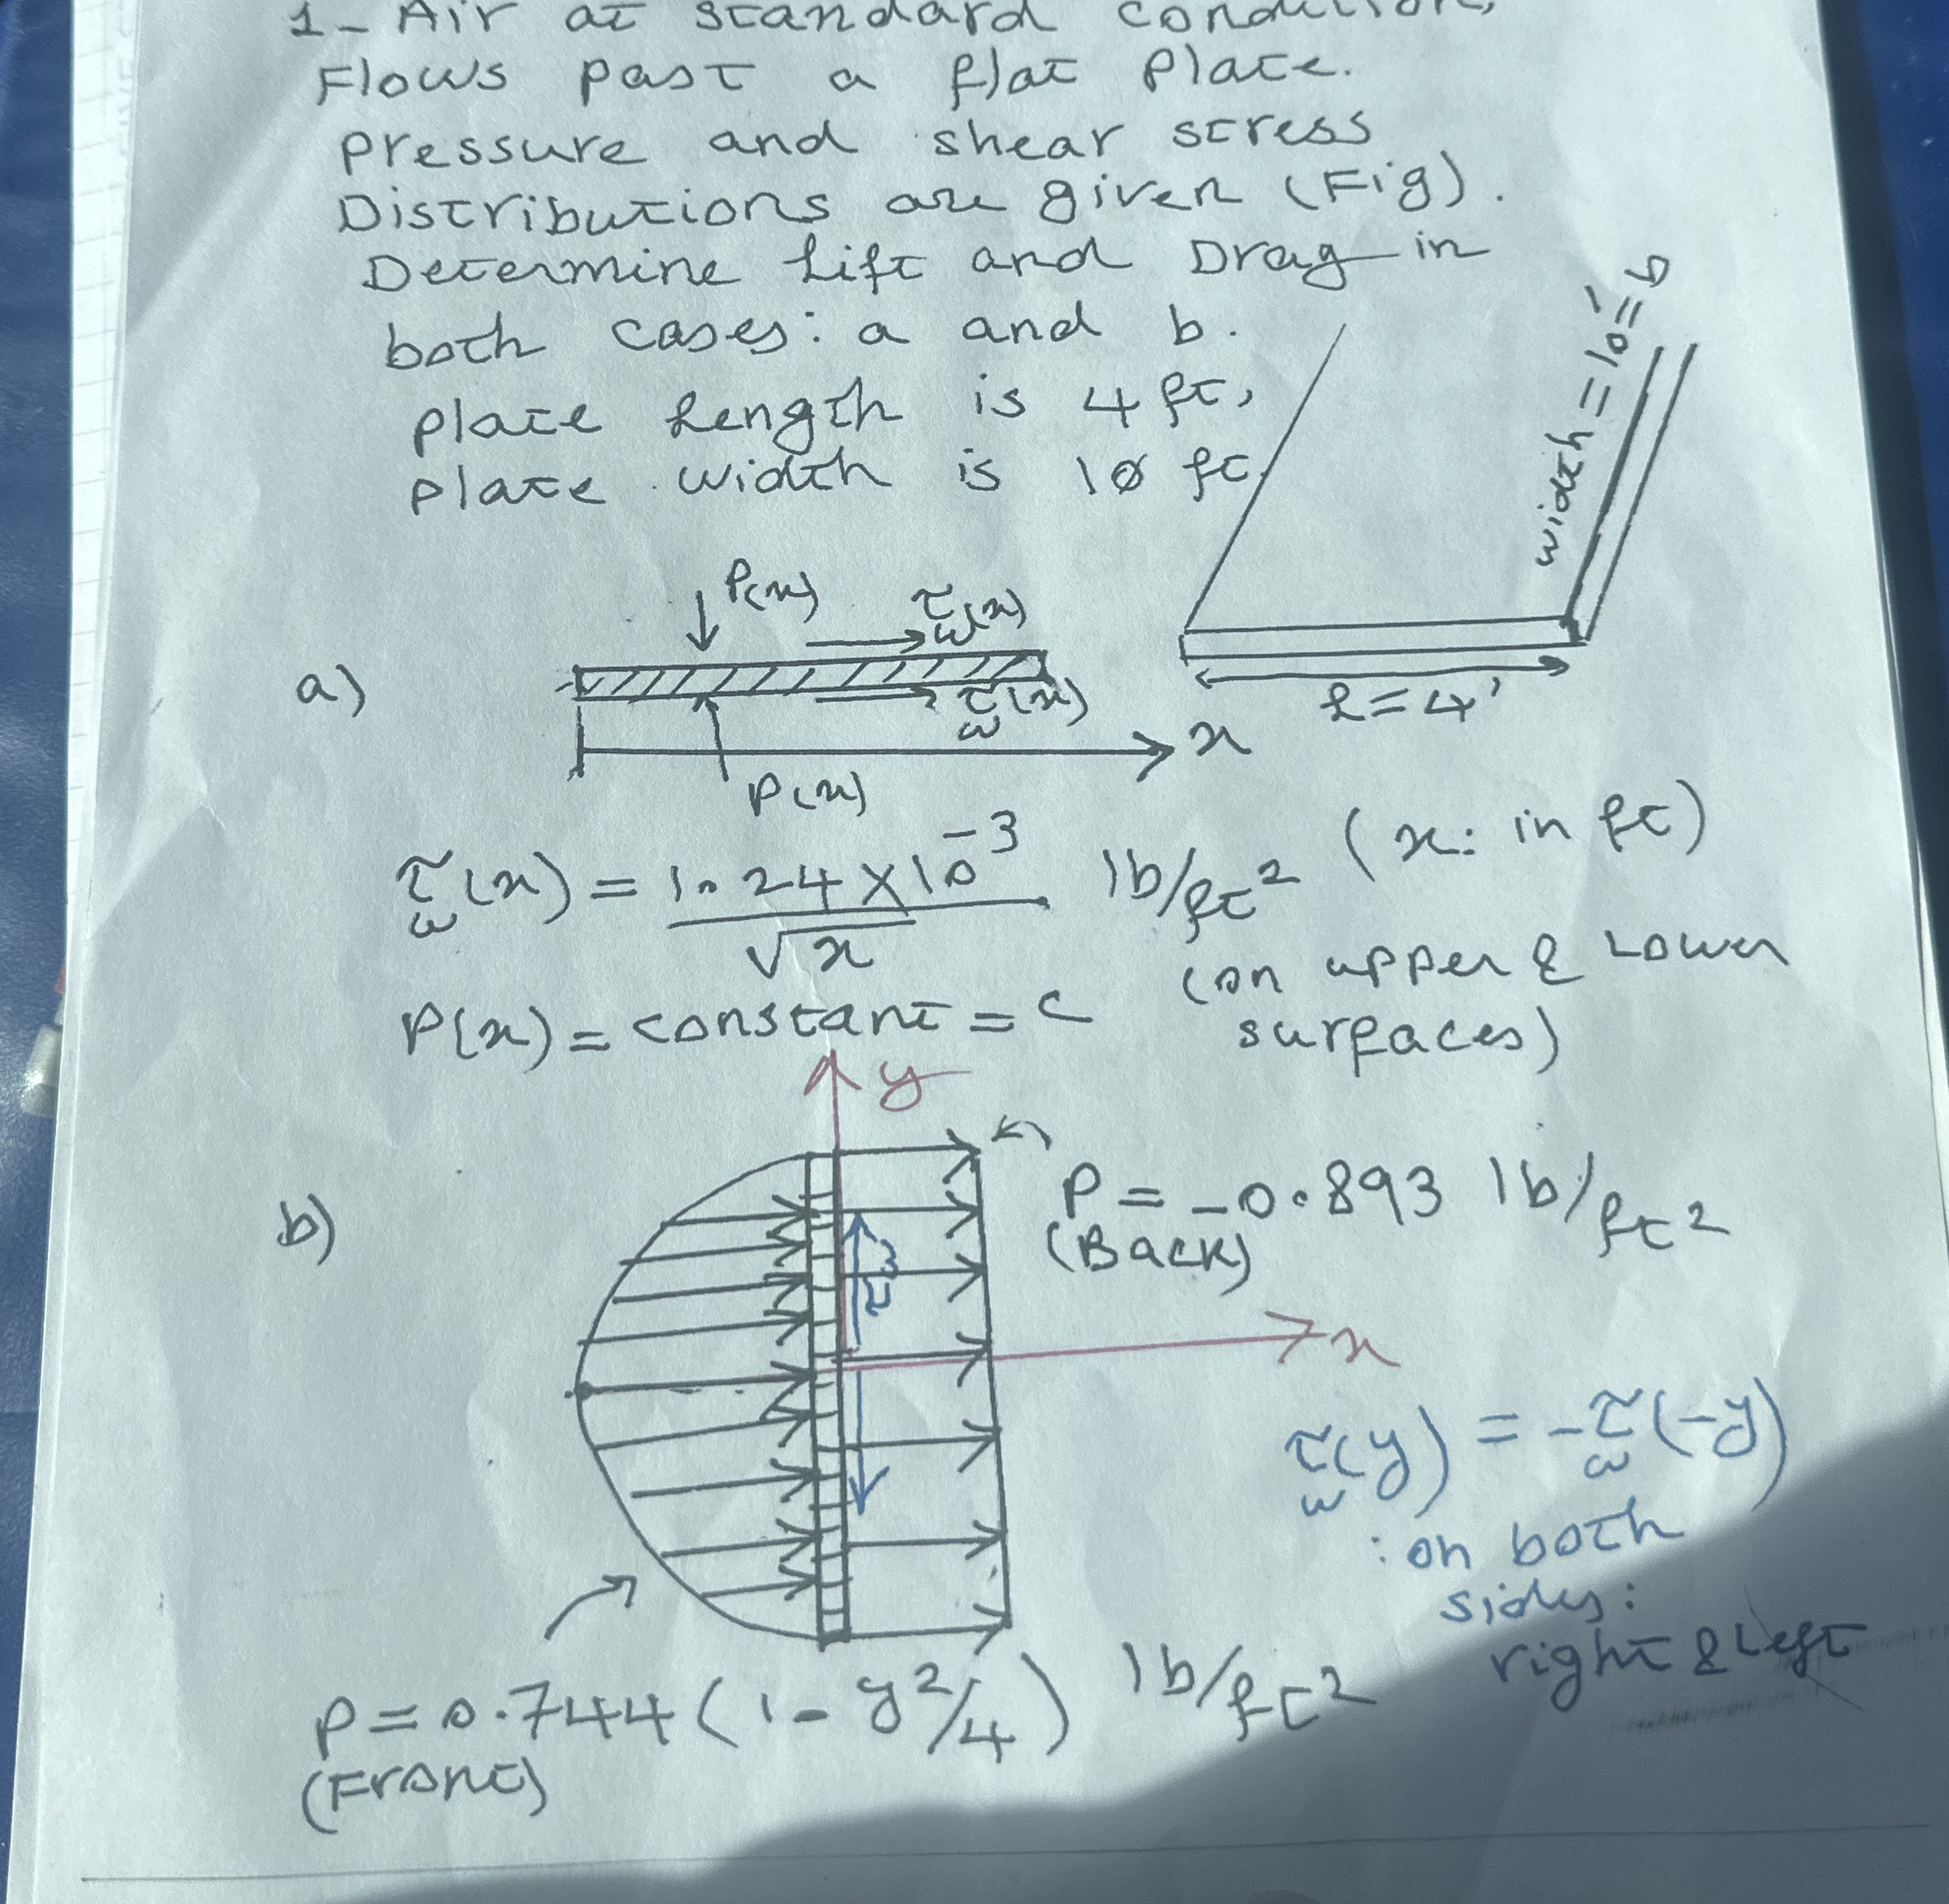 1- Air at standard condition,
Flows past a flat plate.
pressure and shear stress
Distributions are given (Fig).
Determine Lift and Drag in
both cases: a and b.
plate Length is 4 ft,
plate width is 10 ft.
width = 10' = b
ℓ = 4'
a)
P(x)
τw(x)
τw(x)
x
P(x)
τw(x) = 1.24 × 10^-3 / √x lb/ft² (x: in ft)
P(x) = constant = c (on upper & Lower
surfaces)
y
b)
P = -0.893 lb/ft²
(Back)
τw
x
τw(y) = -τw(-y)
: on both
sides:
right & Left
P = 0.744 (1 - y²/4) lb/ft²
(Front)